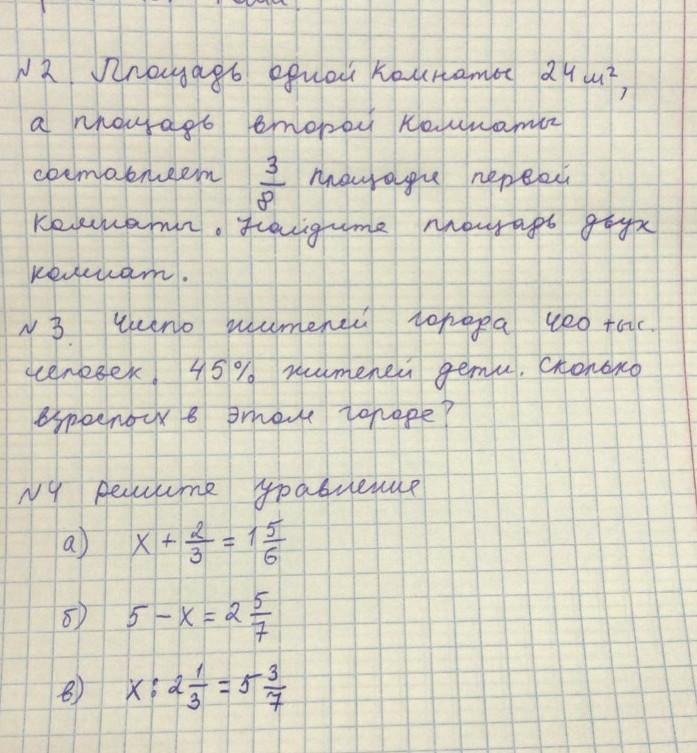 №2. Площадь одной комнаты 24 м²,
а площадь второй комнаты
составляет 3/8 площади первой
комнаты. Найдите площадь двух
комнат.
№3. Число жителей города 400 тыс.
человек. 45% жителей дети. Сколько
взрослых в этом городе?
№4 решите уравнение
а) x + 2/3 = 1 5/6
б) 5 - x = 2 5/7
в) x : 2 1/3 = 5 3/7